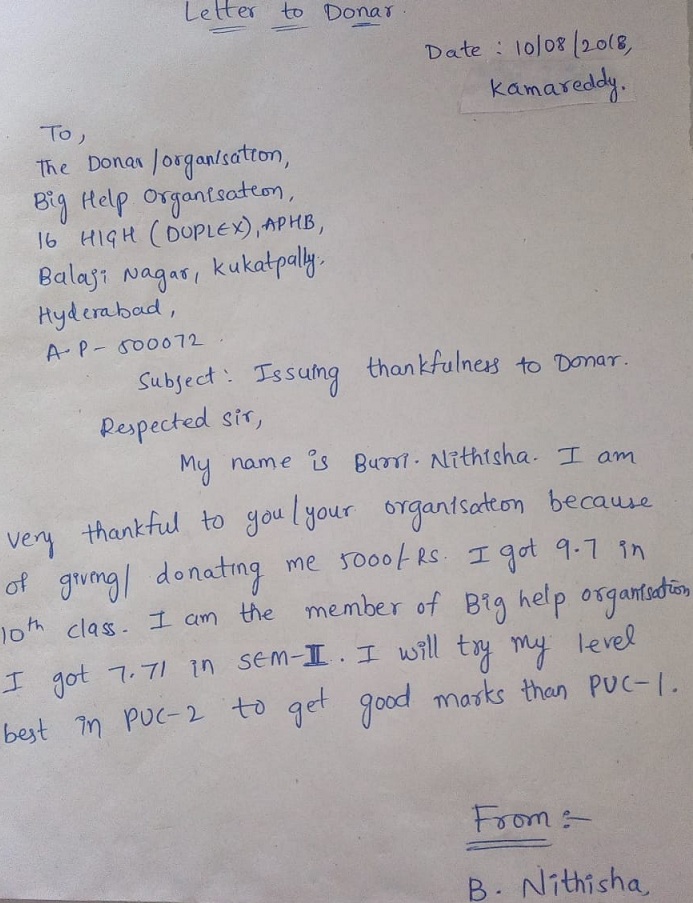 Letter to Donar.
Date : 10/08/2018,
Kamareddy.
To,
The Donar/organisation,
Big Help Organisation,
16 HIGH (DUPLEX), APHB,
Balaji Nagar, Kukatpally,
Hyderabad,
A.P- 500072.
Subject: Issuing thankfulness to Donar.
Respected sir,
My name is Burri. Nithisha. I am
very thankful to you/your organisation because
of giving/ donating me 5000/- Rs. I got 9.7 in
10th class. I am the member of Big help organisation
I got 7.71 in sem-II. I will try my level
best in PUC-2 to get good marks than PUC-1.
From :-
B. Nithisha,